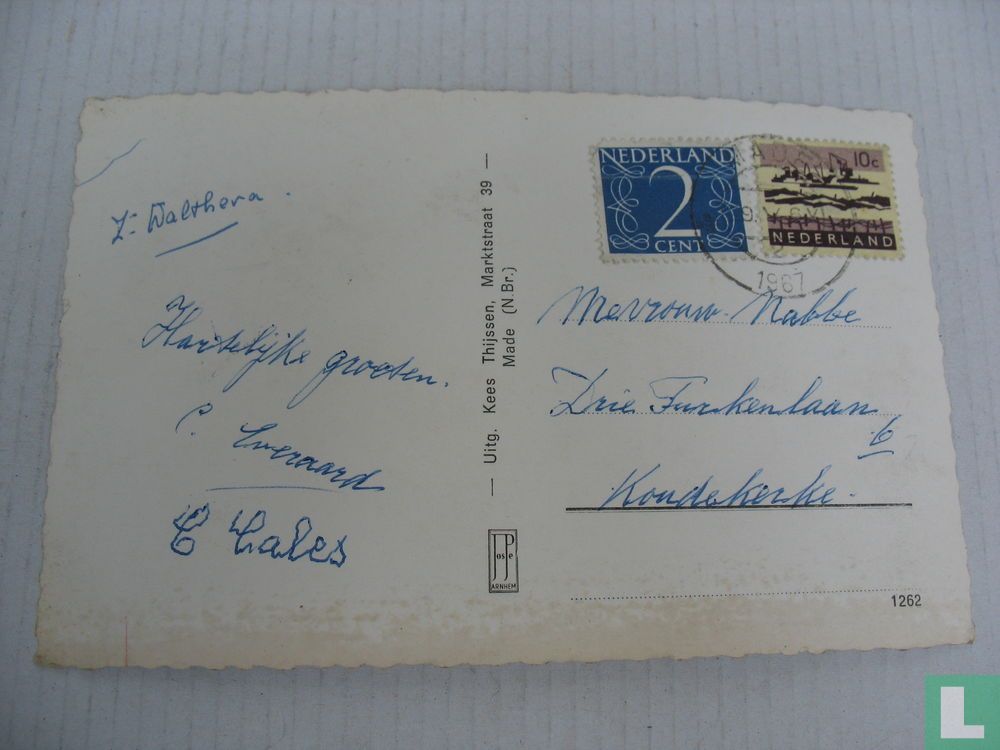 Zr Walthera.
Hartelijke groeten.
C. Everaard
C Cales
— Uitg. Kees Thijssen, Marktstraat 39 —
Made (N.Br.)
JosPe
ARNHEM
NEDERLAND
2
CENT
10c
NEDERLAND
1967
Mevrouw Nabbe
Drie Turkenlaan
6
Koudekerke.
1262
L